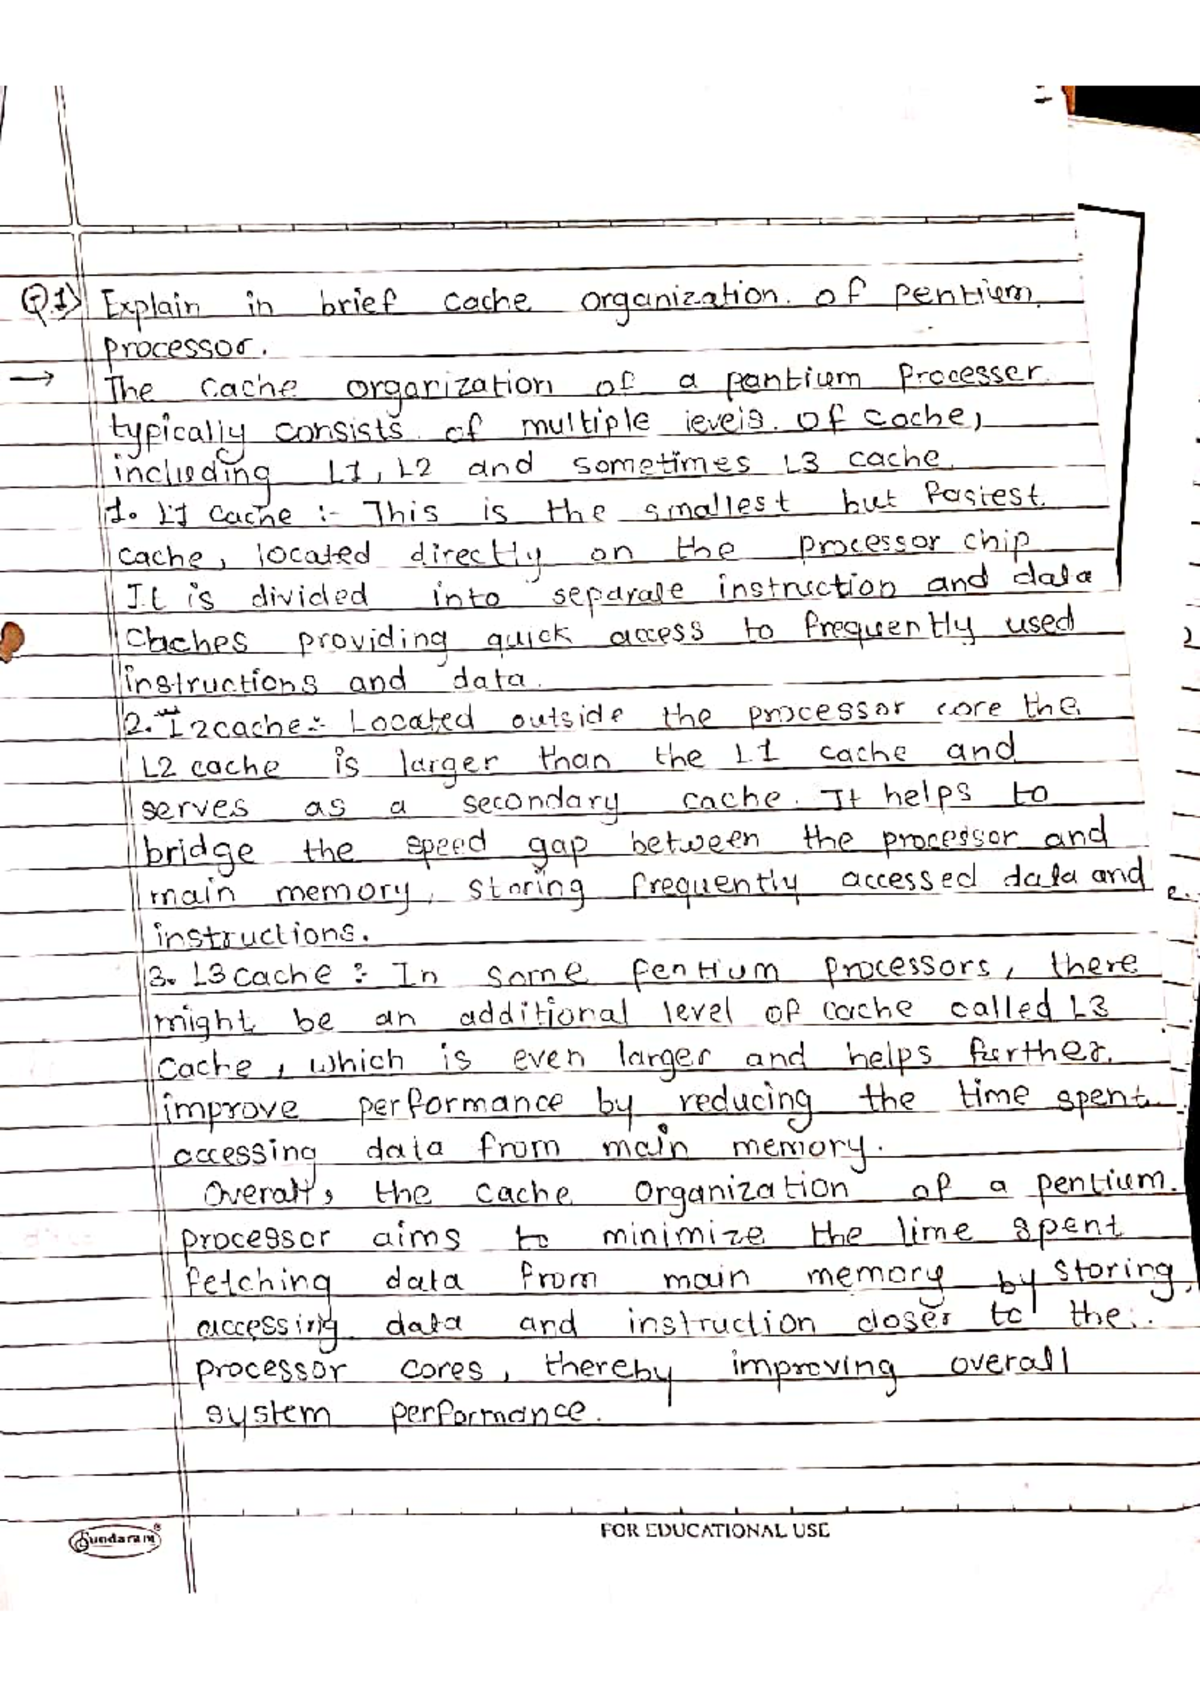 Q.1) Explain in brief cache organization. of pentium.
processor.
→ The cache organization of a pantium Processer.
typically consists of multiple levels. of cache,
including L1, L2 and sometimes L3 cache.
1. L1 cache :- This is the smallest but fastest.
cache, located directly on the processor chip
It is divided into separate instruction and data
Caches providing quick access to frequently used
instructions and data.
2. L2cache:- Located outside the processor core the
L2 cache is larger than the L1 cache and
serves as a secondary cache. It helps to
bridge the speed gap between the processor and
main memory, storing frequently accessed data and
instructions.
3. L3cache :- In some Pentium processors, there
might be an additional level of cache called L3
cache, which is even larger and helps further.
improve performance by reducing the time spent
accessing data from main memory.
Overall, the cache organization of a pentium.
processor aims to minimize the time spent
fetching data from main memory by storing
accessing data and instruction closer to the
processor cores, thereby improving overall
system performance.
Sundaram
FOR EDUCATIONAL USE